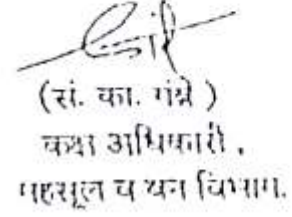 (सं. का. गंध्रे )
कक्ष अधिकारी .
महसूल व वन विभाग.